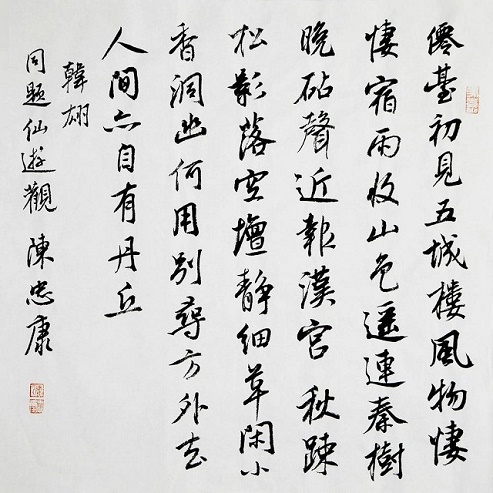 僊臺初見五城樓風物悽
悽宿雨收山色遥連秦樹
晚砧聲近報漢宮秋踈
松影落空壇靜細草閑小
香洞幽何用別尋方外去
人間亦自有丹丘
韓翃
同題仙遊觀 陳忠康